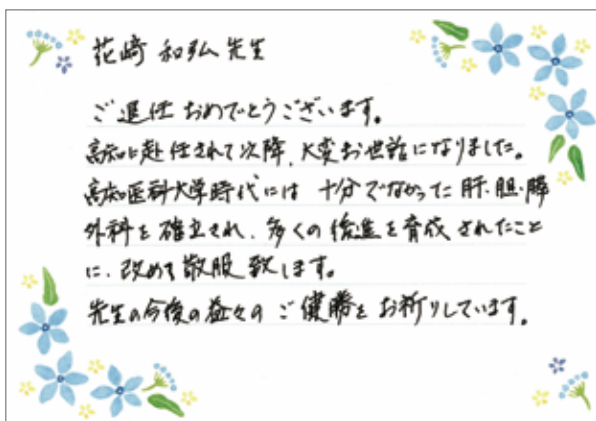 花崎 和弘 先生
ご退任 おめでとうございます。
高知に赴任されて以降、大変お世話になりました。
高知医科大学時代には 十分でなかった 肝・胆・膵
外科を 確立され、多くの後進を育成されたこと
に、改めて敬服致します。
先生の今後の益々の ご健勝を お祈りしています。